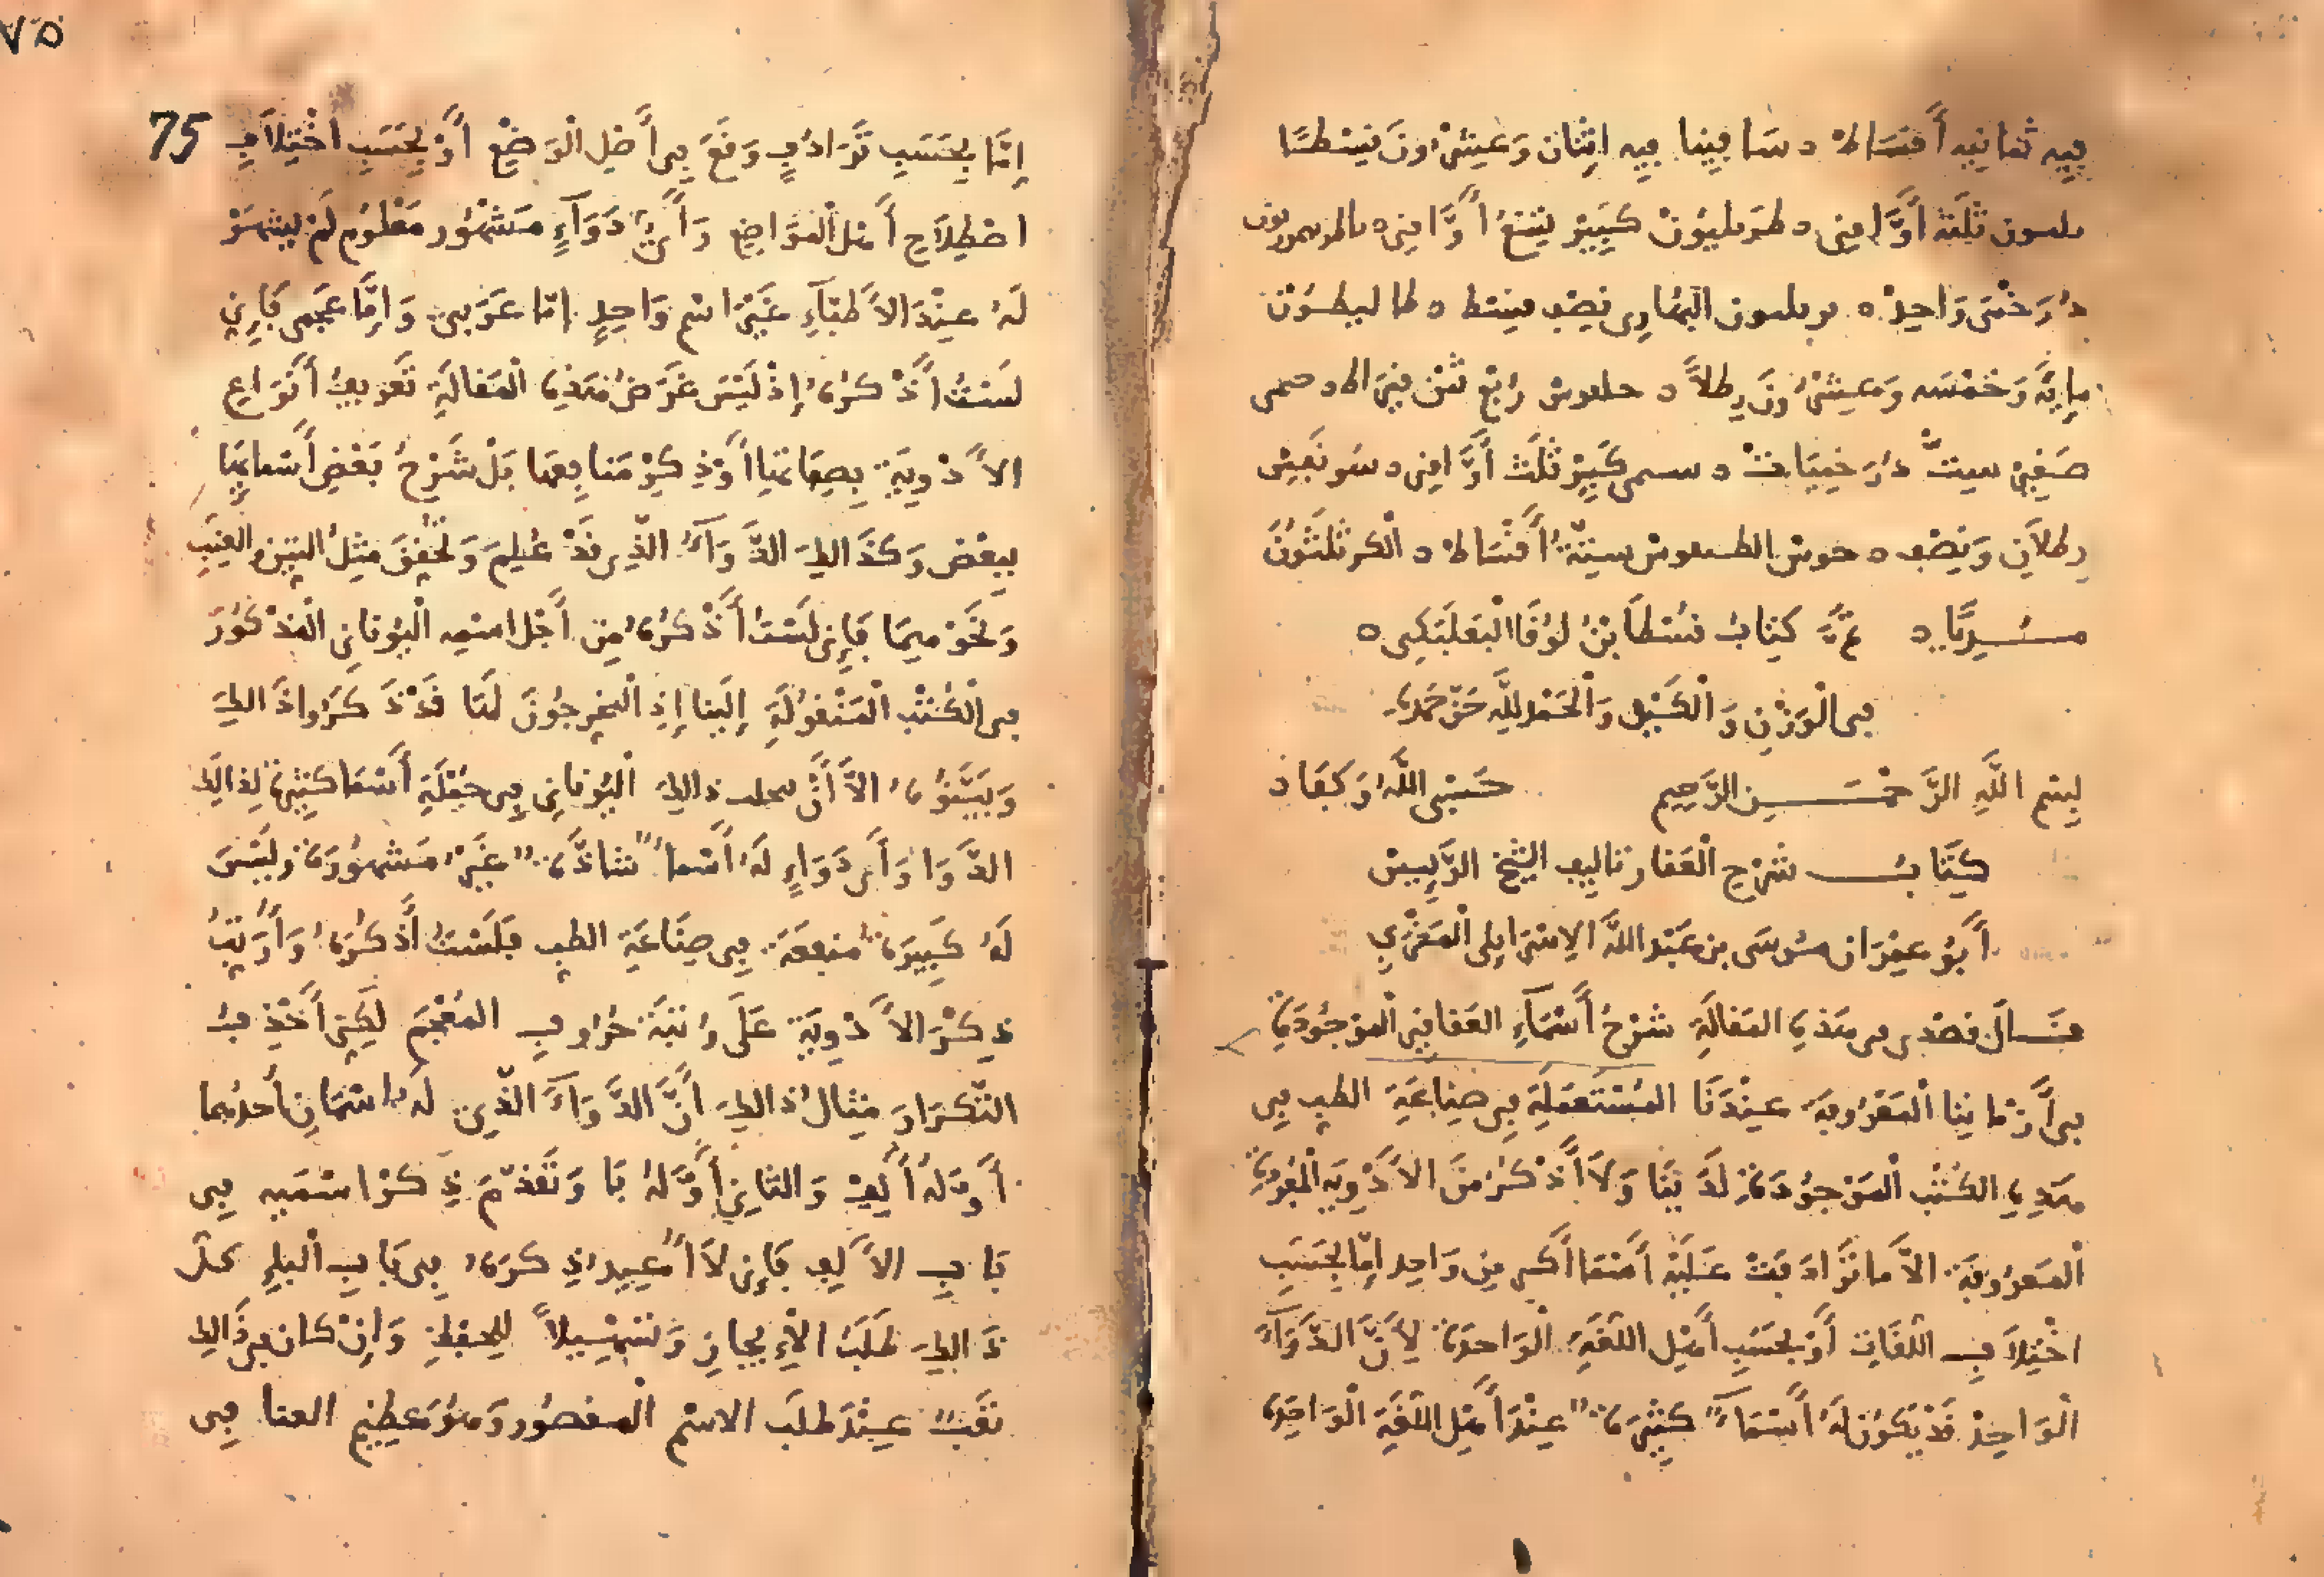 فيه ثمانيه أقساط ه سافينا فيه اثنان وعشرون قسطا
ثلثة أواقي ه طربليون كبير تسع أواقي ه
درخمى واحد ه البحاري نصف قسط ه
مايه وخمسه وعشرون رطلاً ه ربع ثمن قيراط ه
صغير ست درخميات ه كبير ثلث أواقي ه
رطلان ونصف ه ستة أقساط ه الكر ثلثون
ه تم كتاب قسطا بن لوقا البعلبكي ه
في الوزن والكيل والحمد لله حق حمده
بسم الله الرحمن الرحيم حسبي الله وكفا
كتاب شرح العقار تاليف الشيخ الرييس
أبو عمران موسى بن عبد الله الاسرايلي المغربي
قال قصدي في هذه المقالة شرح أسماء العقاقير الموجودة
في أزماننا المعروفة عندنا المستعملة في صناعة الطب في
هذه الكتب الموجودة لدينا ولا أذكر من الأدوية المفردة
المعروفة الا ما ترادفت عليه أسما أكثر من واحد إما بحسب
اختلاف اللغات أو بحسب أهل اللغة الواحدة لأن الدواء
الواحد قد يكون له أسماء كثيرة عند أهل اللغة الواحدة
75
٧٥
إما بحسب ترادف وقع في أصل الوضع أو بحسب اختلاف
اصطلاح أهل المواضع وأي دواء مشهور معلوم لم يشهر
له عند الأطباء غير اسم واحد إما عربي وإما عجمي فإني
لست أذكره إذ ليس غرض هذه المقالة تعريف أنواع
الأدوية بصفاتها أو ذكر منافعها بل شرح بعض أسمائها
ببعض وكذالك الدواء الذي قد علم وتحقق مثل التين والعنب
ونحوهما فإني لست أذكره من أجل اسمه اليوناني المذكور
في الكتب المنقولة إلينا إذ المخرجون لنا قد ذكروا ذالك
وبينوه الا أن ذالك اليوناني في جملة أسما كثيرة لذالك
الدوا وأي دواء له أسما شاذة غير مشهورة وليس
له كبيرة منفعة في صناعة الطب فلست أذكره وأرتب
ذكر الأدوية على رتبة حروف المعجم لكني أحذف
التكرار مثال ذالك أن الدواء الذي له اسمان أحدهما
أوله ألف والثاني أوله با وتقدم ذكر اسميه في
باب الألف فإني لا أعيد ذكره في باب الباء كل
ذالك طلب الإيجاز وتسهيلاً للحفظ وإن كان في ذالك
تعب عند طلب الاسم المقصور وهو عظيم العنا في